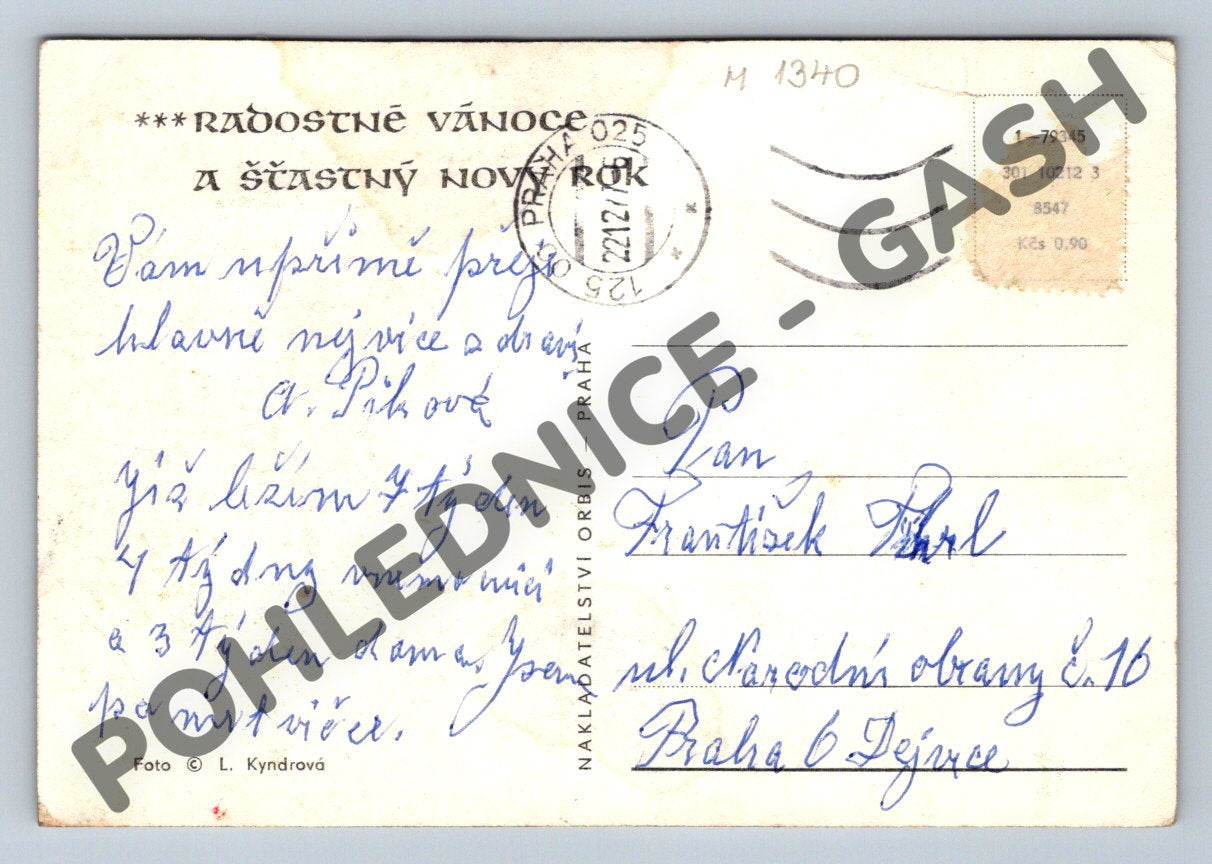 M 1340
***RADOSTNÉ VÁNOCE
A ŠŤASTNÝ NOVÝ ROK
Vám upřímě přeji
hlavně nejvíce zdraví
A. Piková
Již ležím 7 týden
4 týdny v nemocnici
a 3 týden doma. Jsem
po mrtvičce.
Foto © L. Kyndrová
NAKLADATELSTVÍ ORBIS – PRAHA
PRAHA 025
22.12.77
125
1 -79345
301 10212 3
8547
Kčs 0,90
Pan
František
ul. Národní obrany č. 16
Praha 6 Dejvice
POHLEDNICE - GASH